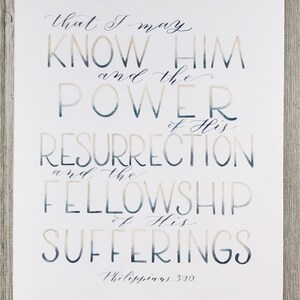 that I may
KNOW HIM
and the
POWER
of His
RESURRECTION
and the
FELLOWSHIP
of His
SUFFERINGS
Philippians 3:10